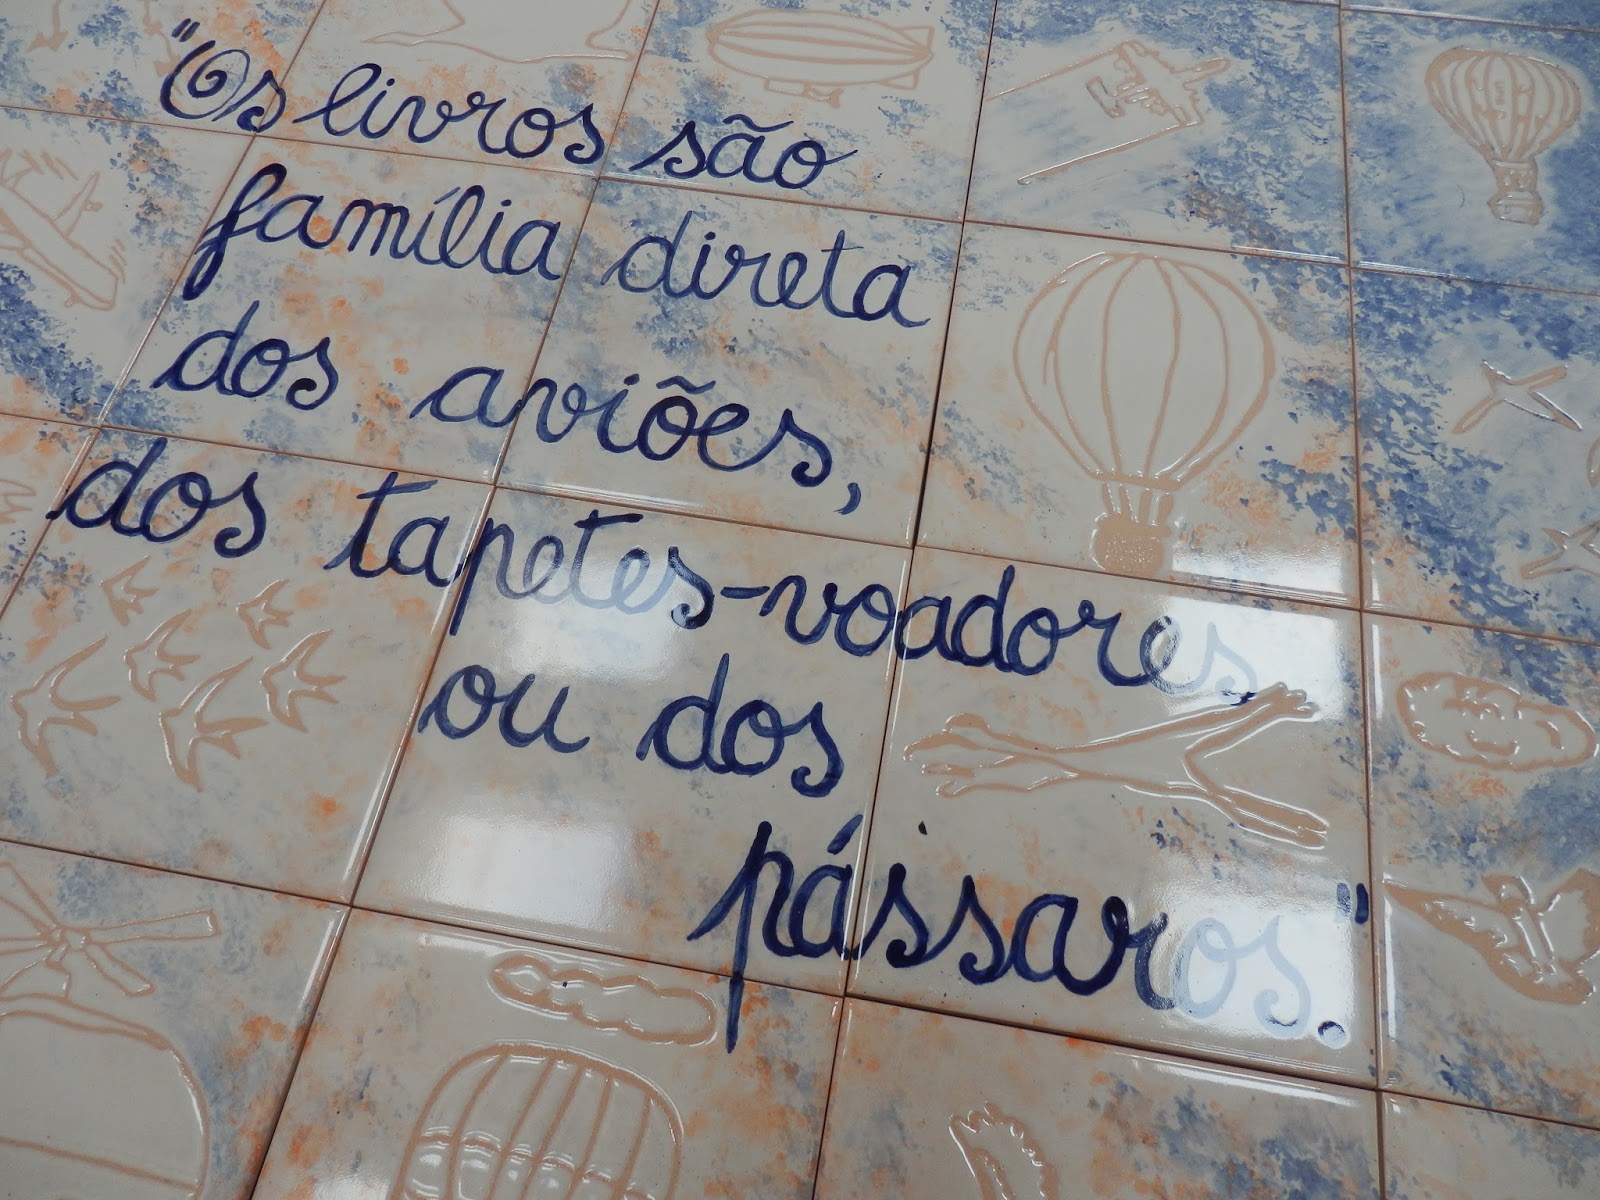 "Os livros são
família direta
dos aviões,
dos tapetes-voadores
ou dos
pássaros."